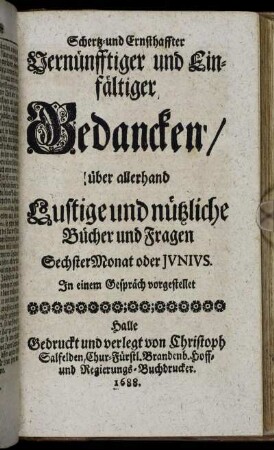 Schertz-und Ernsthaffter
Vernünfftiger und Ein-
fältiger
Gedancken/
über allerhand
Lustige und nützliche
Bücher und Fragen
Sechster Monat oder JVNIVS.
In einem Gespräch vorgestellet
Halle
Gedruckt und verlegt von Christoph
Salfelden, Chur-Fürstl. Brandenb. Hoff-
und Regierungs-Buchdrucker.
1688.